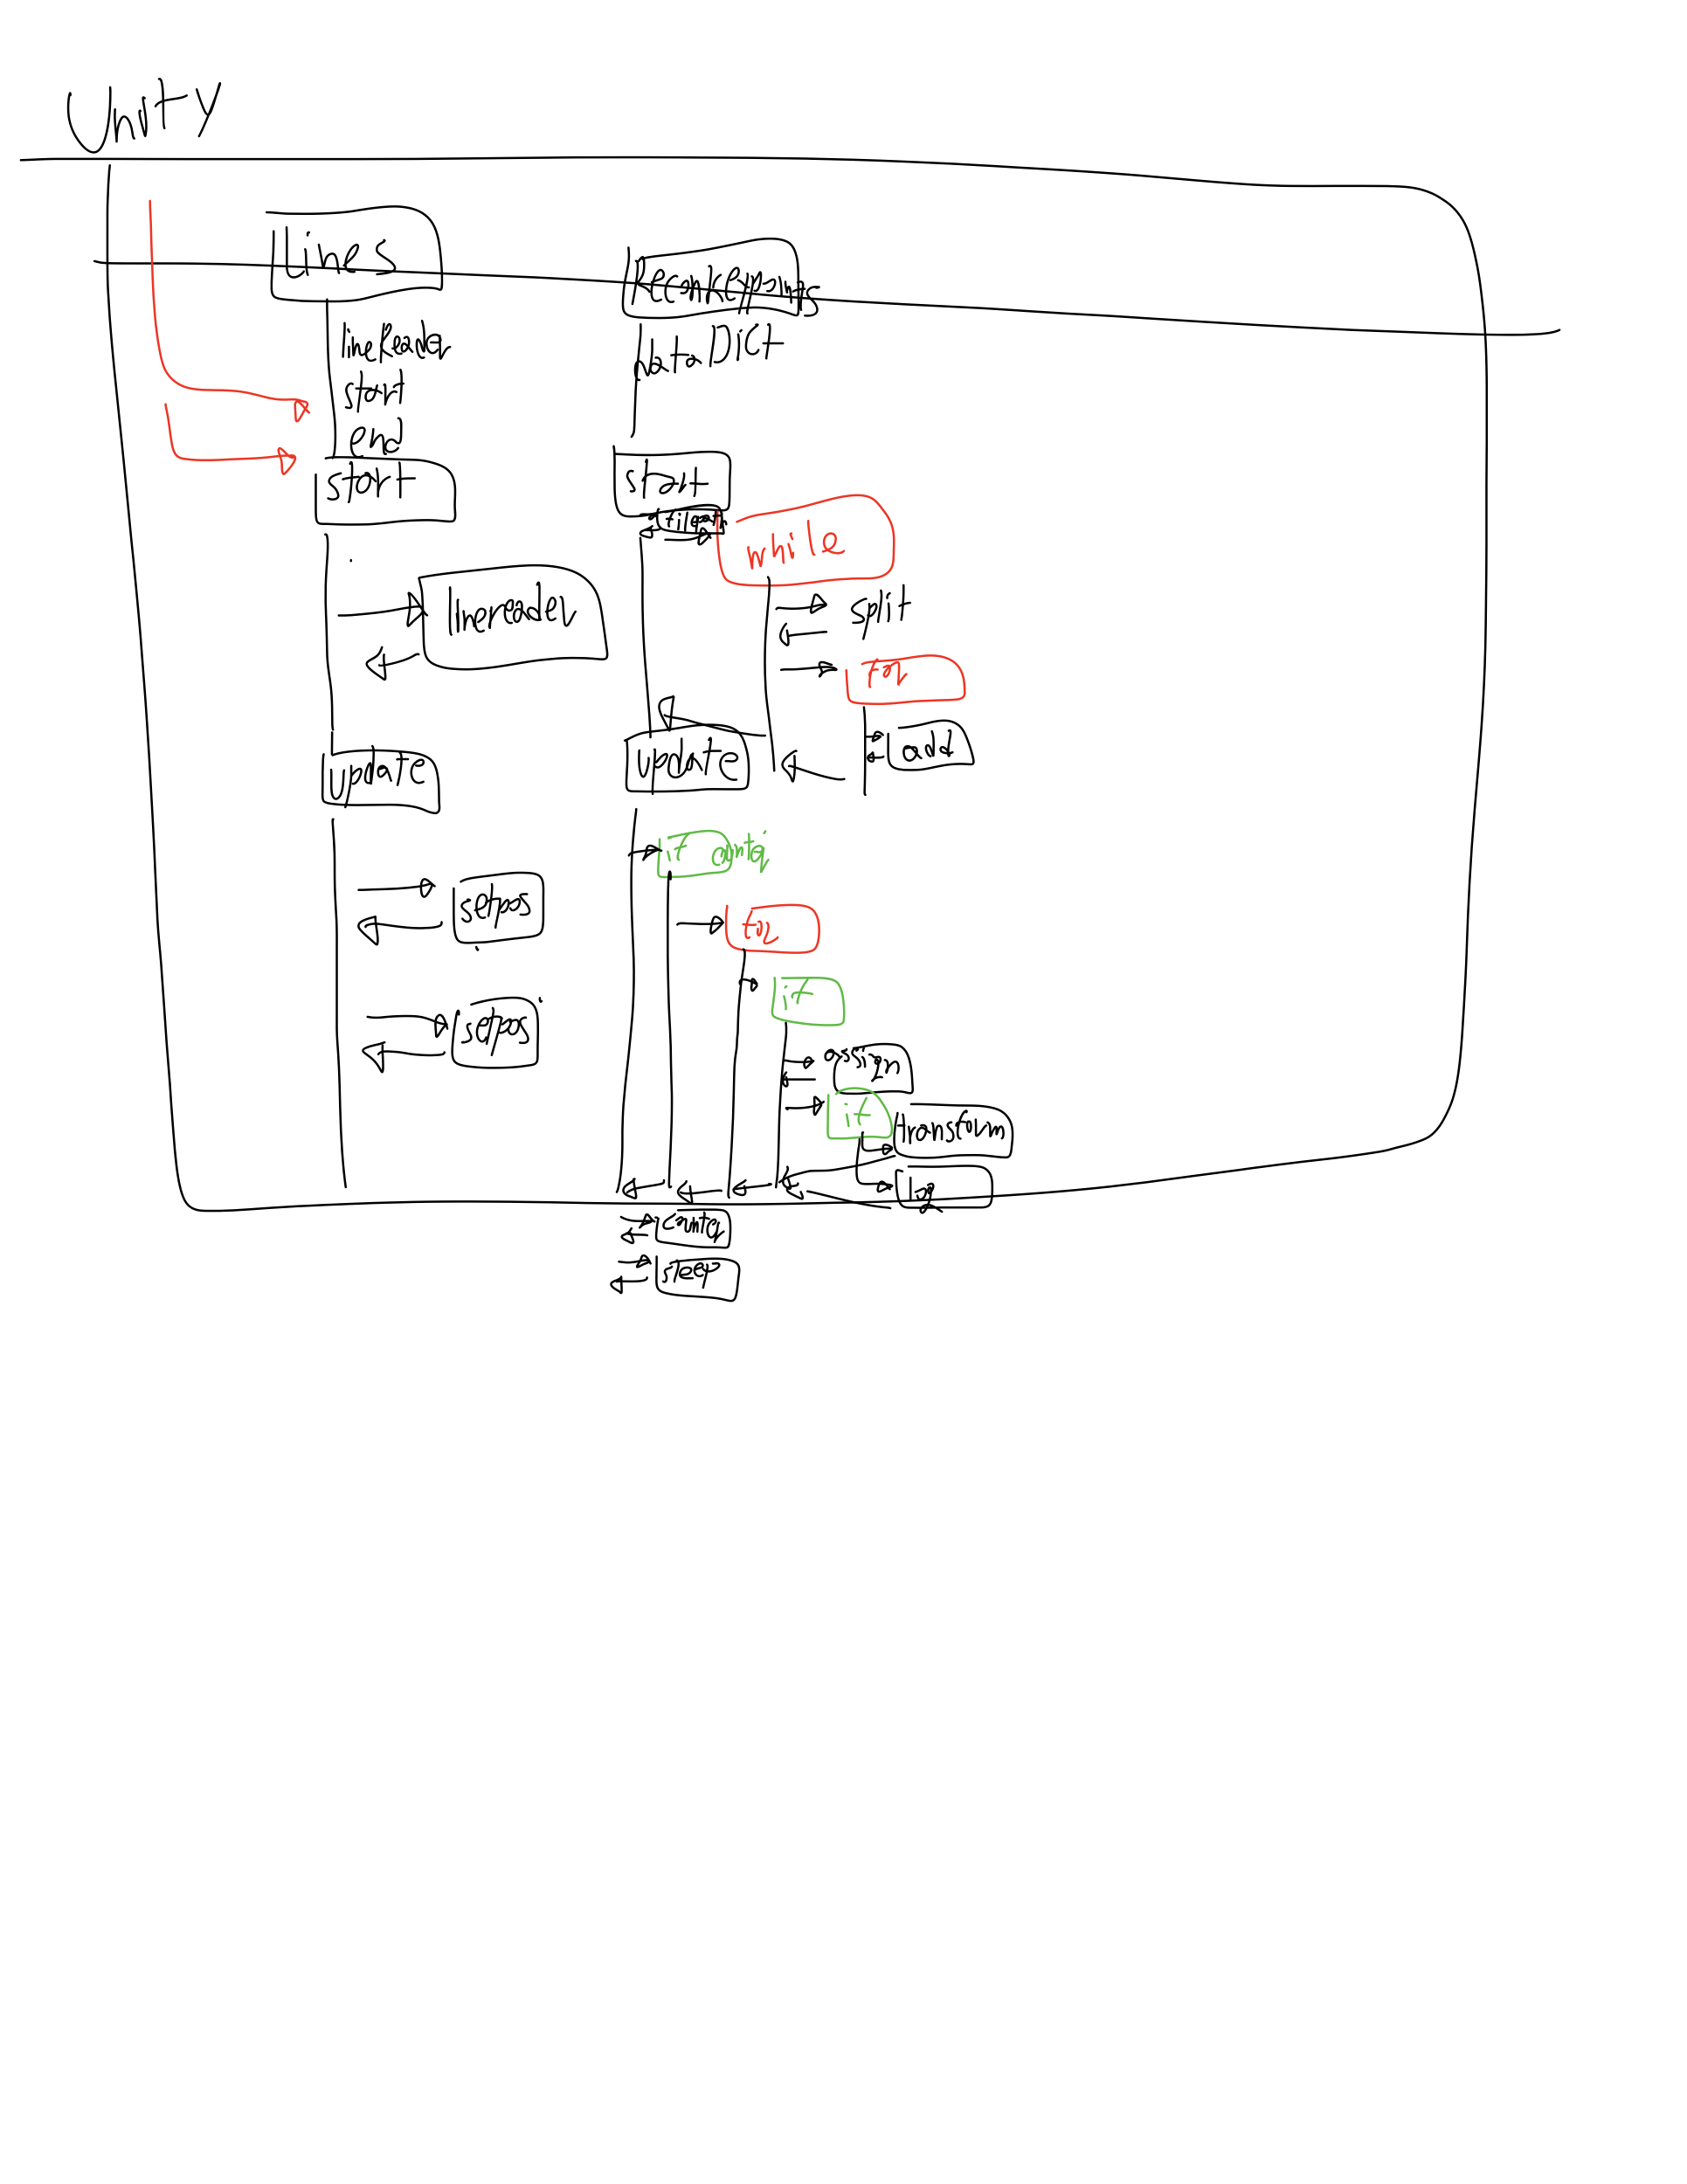 Unity
Lines
lineReader
start
end
start
linereader
update
setpos
setpos
dataDict
start
while
split
for
add
update
if counter
for
if
assign
if
transform
log
counter
sleep